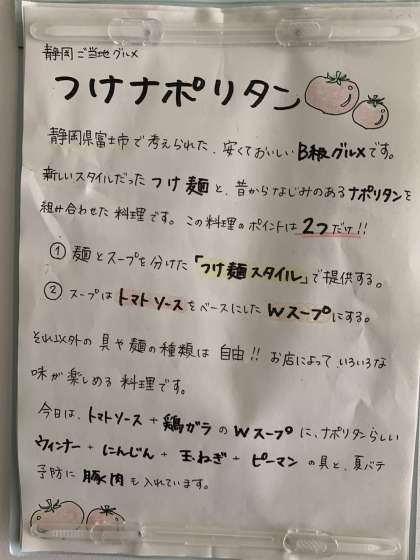 静岡ご当地グルメ
つけナポリタン
静岡県富士市で考えられた、安くておいしいB級グルメです。
新しいスタイルだったつけ麺と、昔からなじみのあるナポリタンを
組み合わせた料理です。この料理のポイントは2つだけ!!
① 麺とスープを分けた「つけ麺スタイル」で提供する。
② スープはトマトソースをベースにしたWスープにする。
それ以外の具や麺の種類は自由!! お店によっていろいろな
味が楽しめる料理です。
今日は、トマトソース+鶏ガラのWスープに、ナポリタンらしい
ウィンナー+にんじん+玉ねぎ+ピーマンの具と、夏バテ
予防に豚肉も入れています。